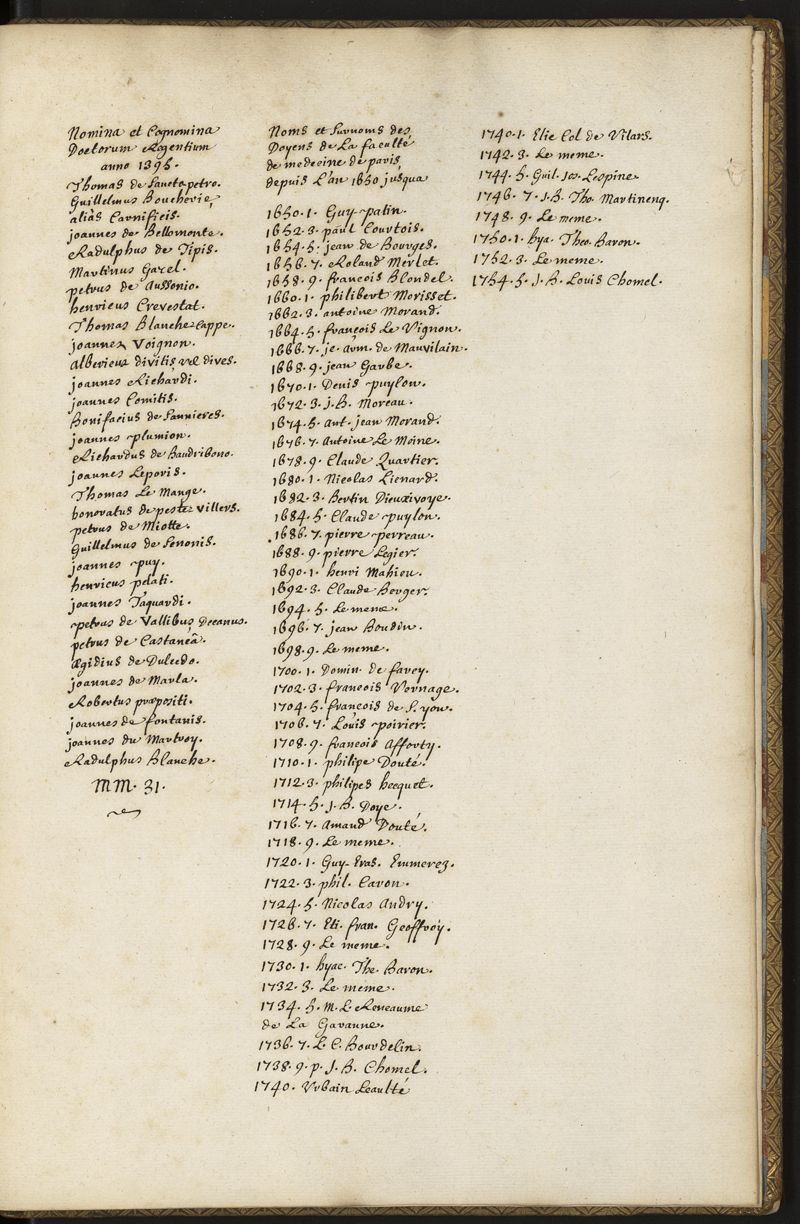 Nomina et Cognomina
Doctorum Regentium
anno 1395.
Thomas de Sancto petro.
Guillelmus Boucherie,
alias Carnificis.
joannes de Bellomonte.
Radulphus de Tipis.
Martinus Gazel.
petrus de Aussonio.
henricus Crevestat.
Thomas Blanche Cappe.
joannes Voignon.
Albericus divitis vel dives.
joannes Richardi.
joannes Comitis.
Bonifacius de Sannieres.
joannes plumion.
Richardus de Baudribono.
joannes Leporis.
Thomas Le Mange.
honoratus de peste Villers.
petrus de Miotte.
Guillelmus de Senonis.
joannes puy.
henricus pelati.
joannes Jaquardi.
petrus de Vallibus Decanus.
petrus de Castaneâ.
Ægidius de Dulcedo.
joannes de Marla.
Robertus præpositi.
joannes de fontanis.
joannes du Martroy.
Radulphus Blanche.
MM. 31.
Noms et Surnoms des
Doyens de La faculté
de medecine de paris
depuis L'an 1650 jusqua
1650.1. Guy patin.
1652.3. paul Courtois.
1654.5. jean de Bourges.
1656.7. Roland Merlet.
1658.9. francois Blondel.
1660.1. philibert Morisset.
1662.3. antoine Morand.
1664.5. françois Le Vignon.
1666.7. je. arm. de Mauvilain.
1668.9. jean Garbe.
1670.1. Denis puylon.
1672.3. J.B. Moreau.
1674.5. Ant. jean Morand.
1676.7. Antoine Le Moine.
1678.9. Claude Quartier.
1680.1. Nicolas Lienard.
1682.3. Bertin Dieuxivoye.
1684.5. Claude puylon.
1686.7. pierre perreau.
1688.9. pierre Legier.
1690.1. henri Mahieu.
1692.3. Claude Berger.
1694.5. Le meme.
1696.7. jean Boudin.
1698.9. Le meme.
1700.1. Domin. de farcy.
1702.3. francois Vernage.
1704.5. françois de S. yon.
1706.7. Louis poirier.
1708.9. francois Afforty.
1710.1. philipe Douté.
1712.3. philipes hecquet.
1714.5. J.B. Doye.
1716.7. Amand Douté.
1718.9. Le meme.
1720.1. Guy Eras. Emmerez.
1722.3. phil. Caron.
1724.5. Nicolas Andry.
1726.7. Eti. fran. Geoffroy.
1728.9. Le meme.
1730.1. hyac. The. Baron.
1732.3. Le meme.
1734.5. M. L. Reneaume
de La Garanne.
1736.7. L. C. Bourdelin.
1738.9. p. J. B. Chomel.
1740. Vrbain Leaulté
1740.1. Elie Col de Vilars.
1742.3. Le meme.
1744.5. Guil. Jos. Lespine.
1746.7. J.B. Tho. Martinenq.
1748.9. Le meme.
1750.1. hya. Theo. Baron.
1752.3. Le meme.
1754.5. J.B. Louis Chomel.